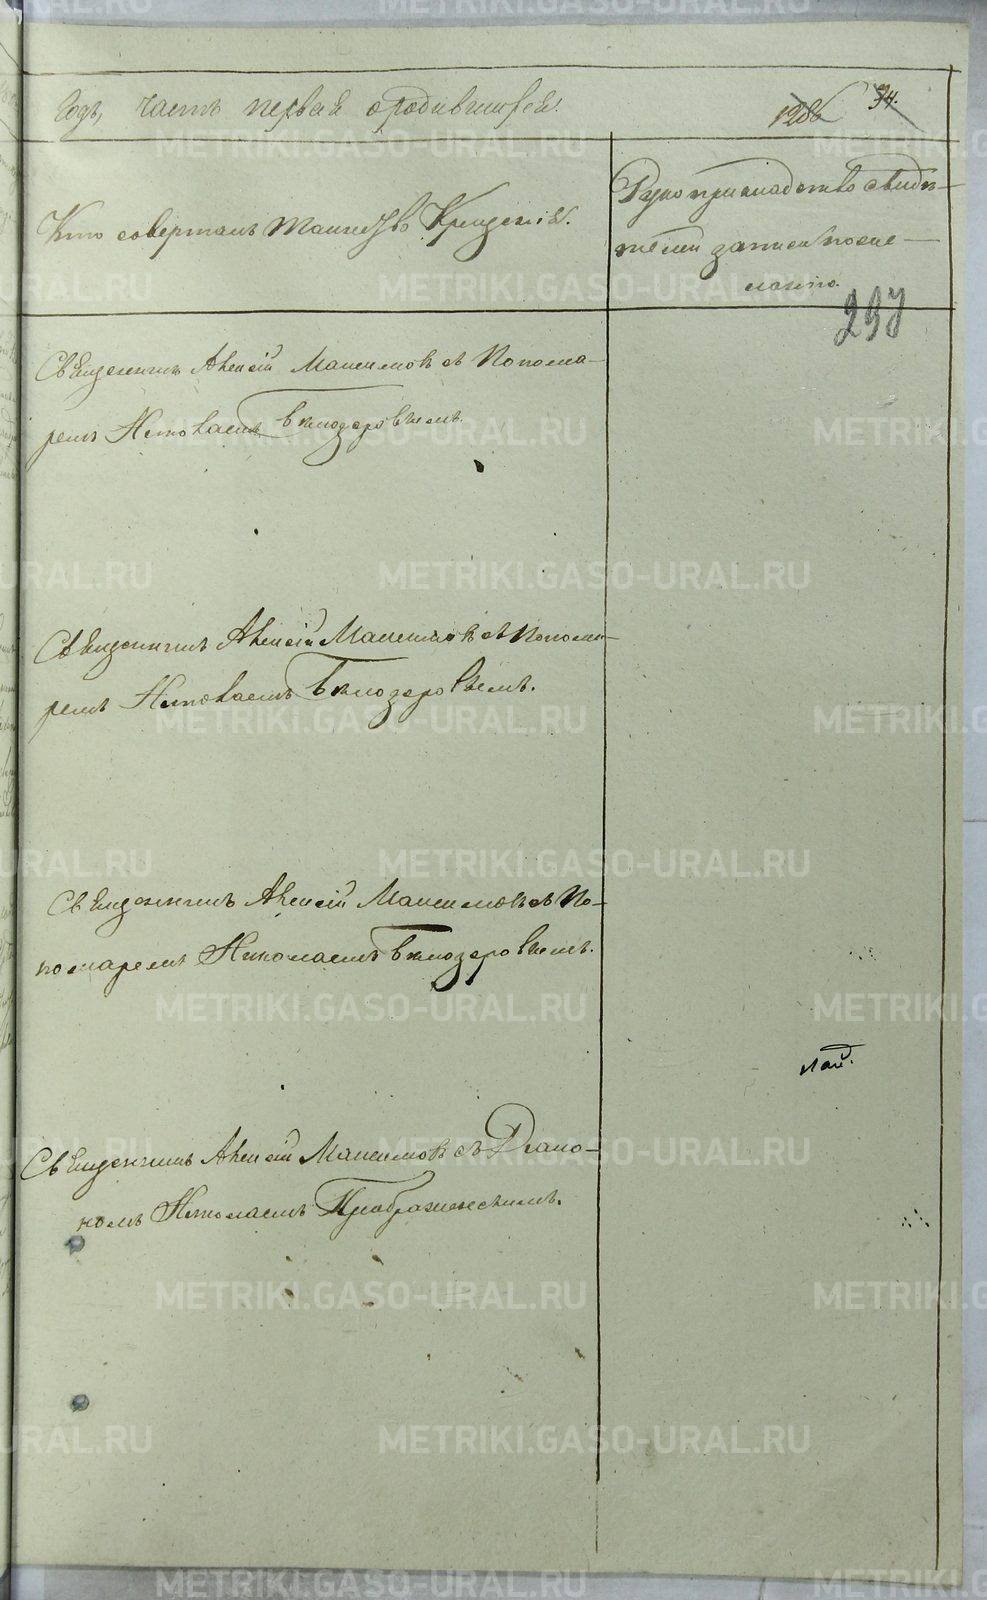 Годъ, часть первая о родившихся.
1286 34.
Кто совершалъ Таинство Крещенія.
Рукоприкладство свидѣ-
телей записи по же-
ланію.
297
Священникъ Алексій Максимовъ съ Понома-
ремъ Николаемъ
Священникъ Алексій Максимовъ съ Понома-
ремъ Николаемъ
Священникъ Алексій Максимовъ съ По-
номаремъ Николаемъ
Священникъ Алексій Максимовъ съ Діако-
номъ Николаемъ Преображенскимъ.
METRIKI.GASO-URAL.RU